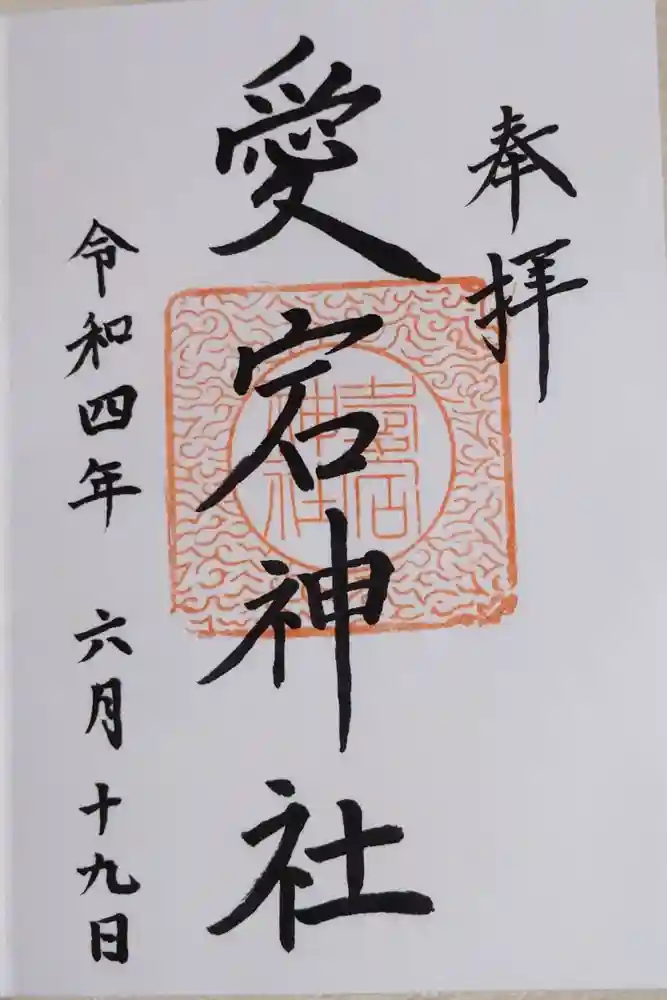 奉拝
愛宕神社
令和四年 六月十九日
神社